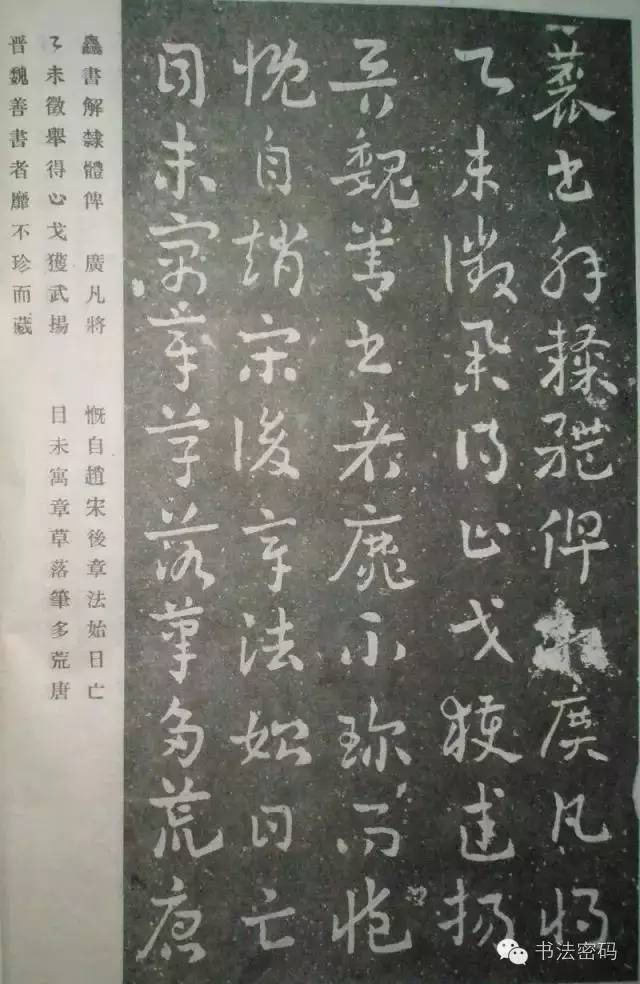 麤書解隸體俾廣凡將
乙未徵舉得止戈獲武揚
晉魏善書者靡不珍而藏
慨自趙宋後章法始日亡
目未寓章草落筆多荒唐
麤書解隸體俾 廣凡將
乙未徵舉得止戈獲武揚
晉魏善書者靡不珍而藏
慨自趙宋後章法始日亡
目未寓章草落筆多荒唐
书法密码